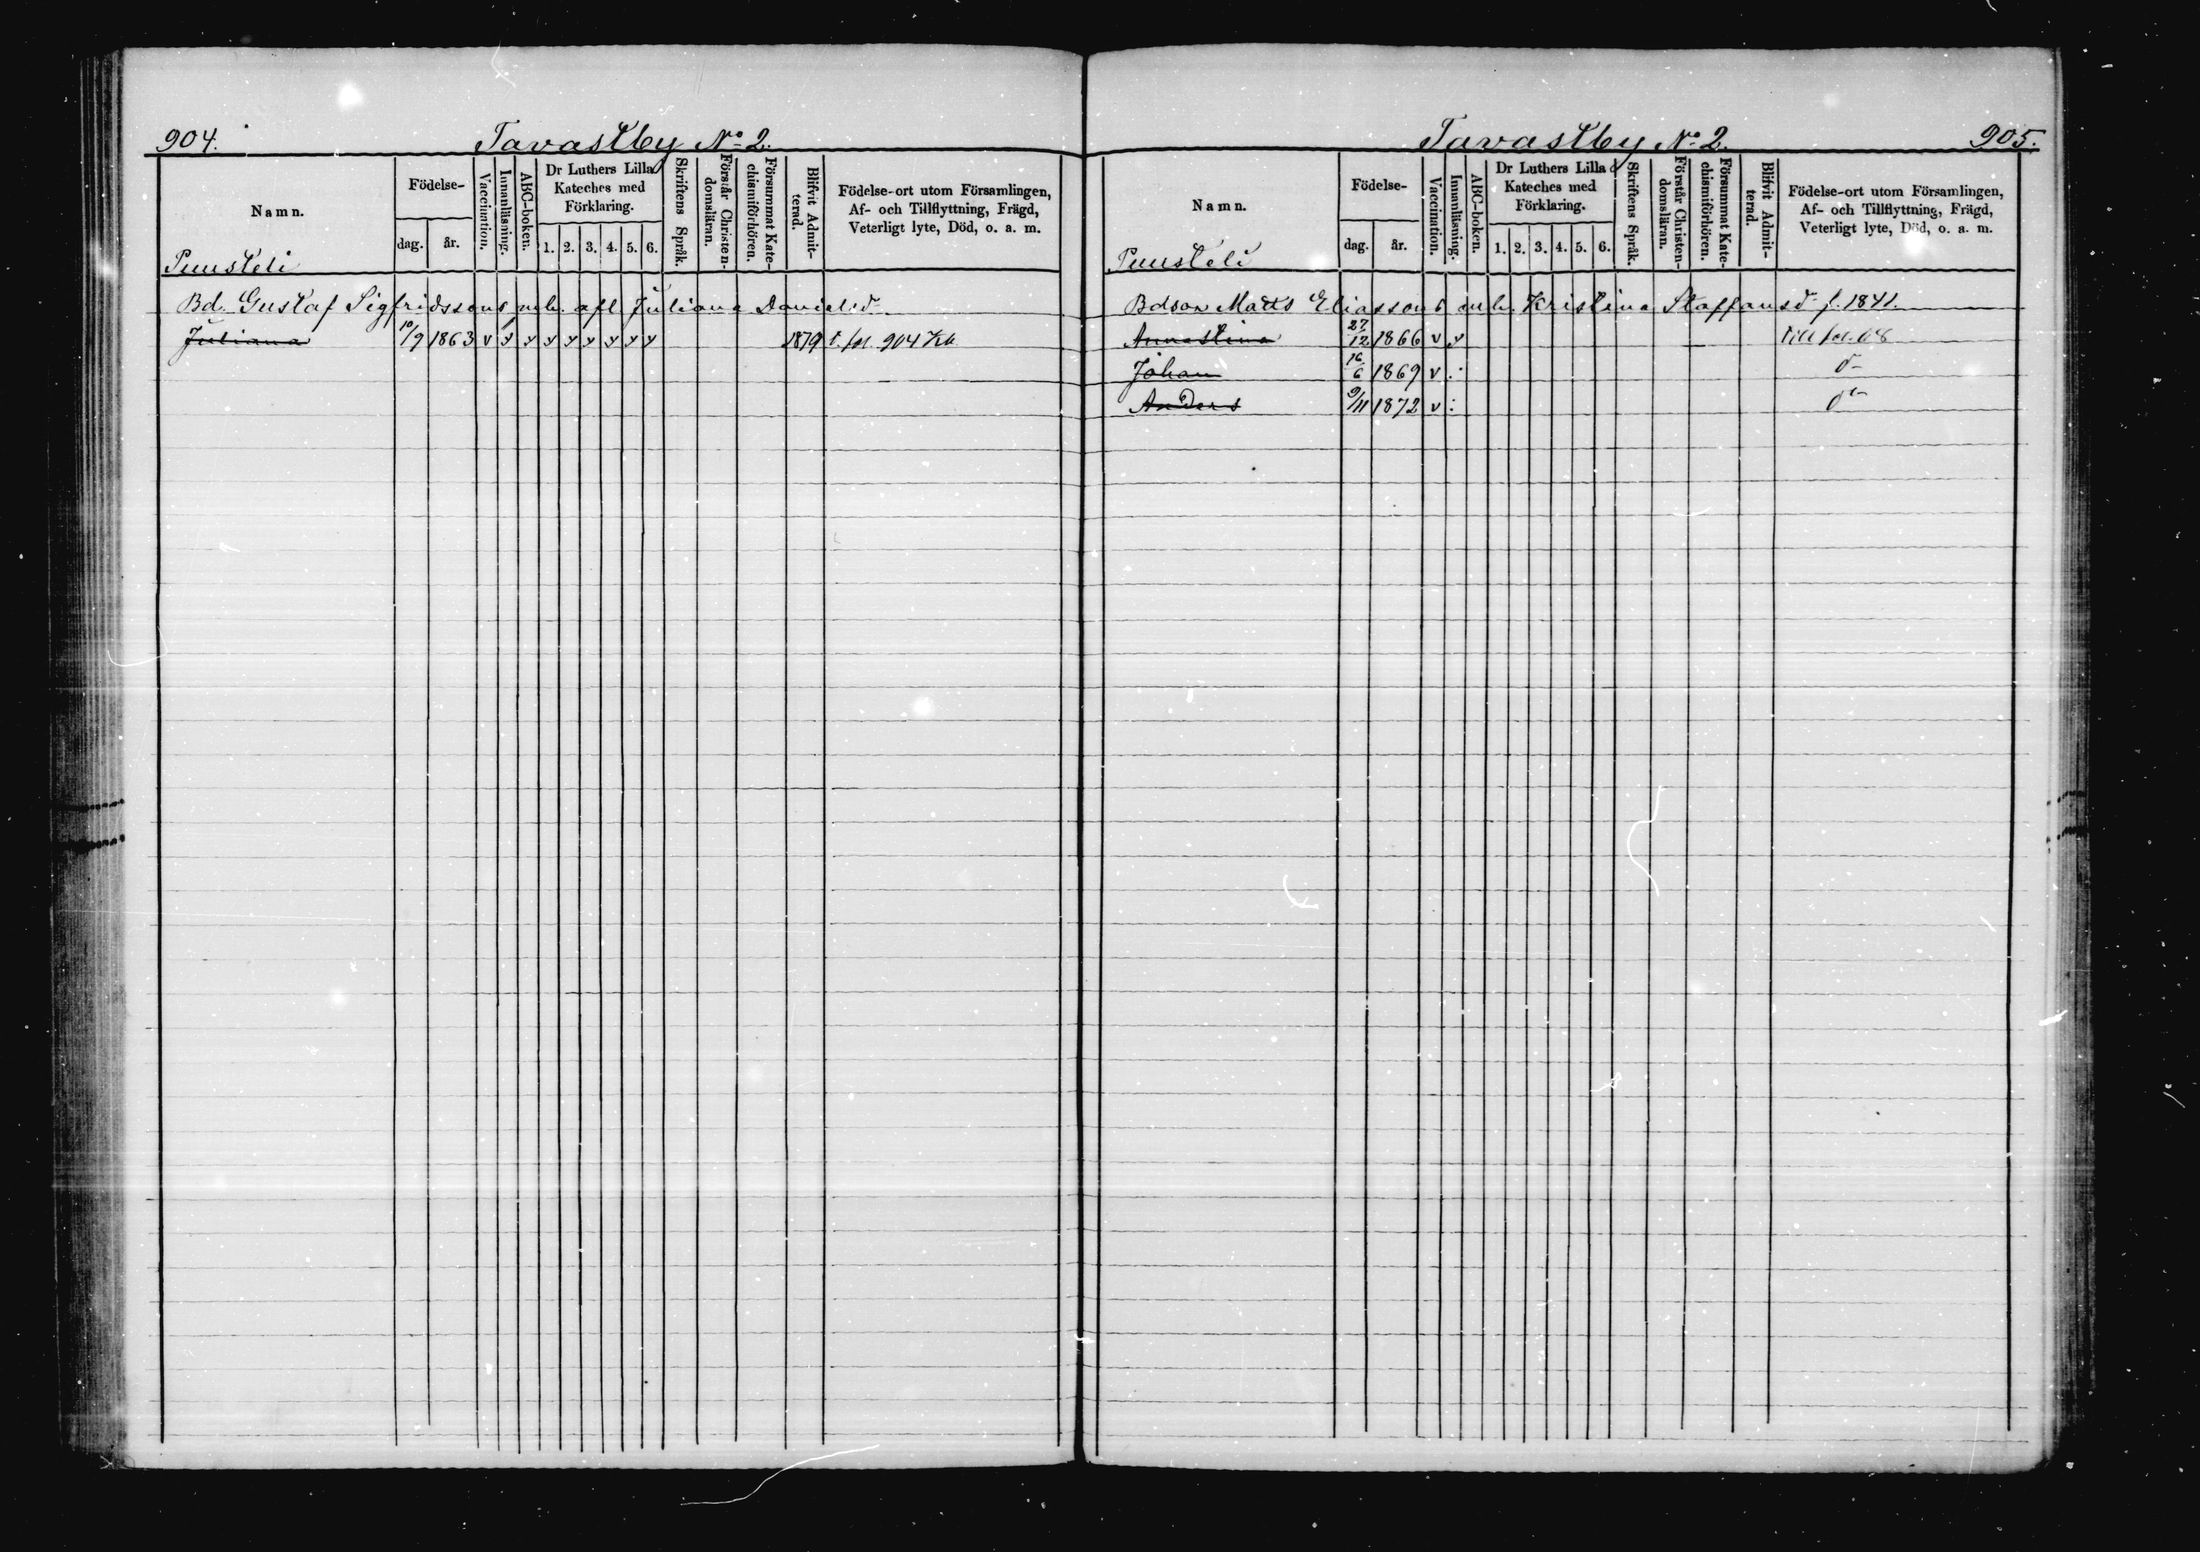 904.
Tavastby No 2.
Namn.
Födelse-
dag. år.
Vaccination.
Innanläsning.
ABC-boken.
Dr Luthers Lilla
Kateches med
Förklaring.
1. 2. 3. 4. 5. 6.
Skriftens Språk.
Förstår Christen-
domsläran.
Försummat Kate-
chismiförhören.
Blifvit Admit-
terad.
Födelse-ort utom Församlingen,
Af- och Tillflyttning, Frägd,
Veterligt lyte, Död, o. a. m.
Puusteli
Bd. Gustaf Sigfridssons m h. afl Juliana Danielsd
Juliana 10/9 1863 v y y y y y y y y 1879 t. fol. 904 Kb
Tavastby No 2.
905.
Namn.
Födelse-
dag. år.
Vaccination.
Innanläsning.
ABC-boken.
Dr Luthers Lilla
Kateches med
Förklaring.
1. 2. 3. 4. 5. 6.
Skriftens Språk.
Förstår Christen-
domsläran.
Försummat Kate-
chismiförhören.
Blifvit Admit-
terad.
Födelse-ort utom Församlingen,
Af- och Tillflyttning, Frägd,
Veterligt lyte, Död, o. a. m.
Puusteli
Bdson Matts Eliassons m h. Kristina Staffansd f. 1841.
Annastina 27/12 1866 v y till fol. 68
Johan 16/6 1869 v . d-
Anders 9/11 1872 v : do